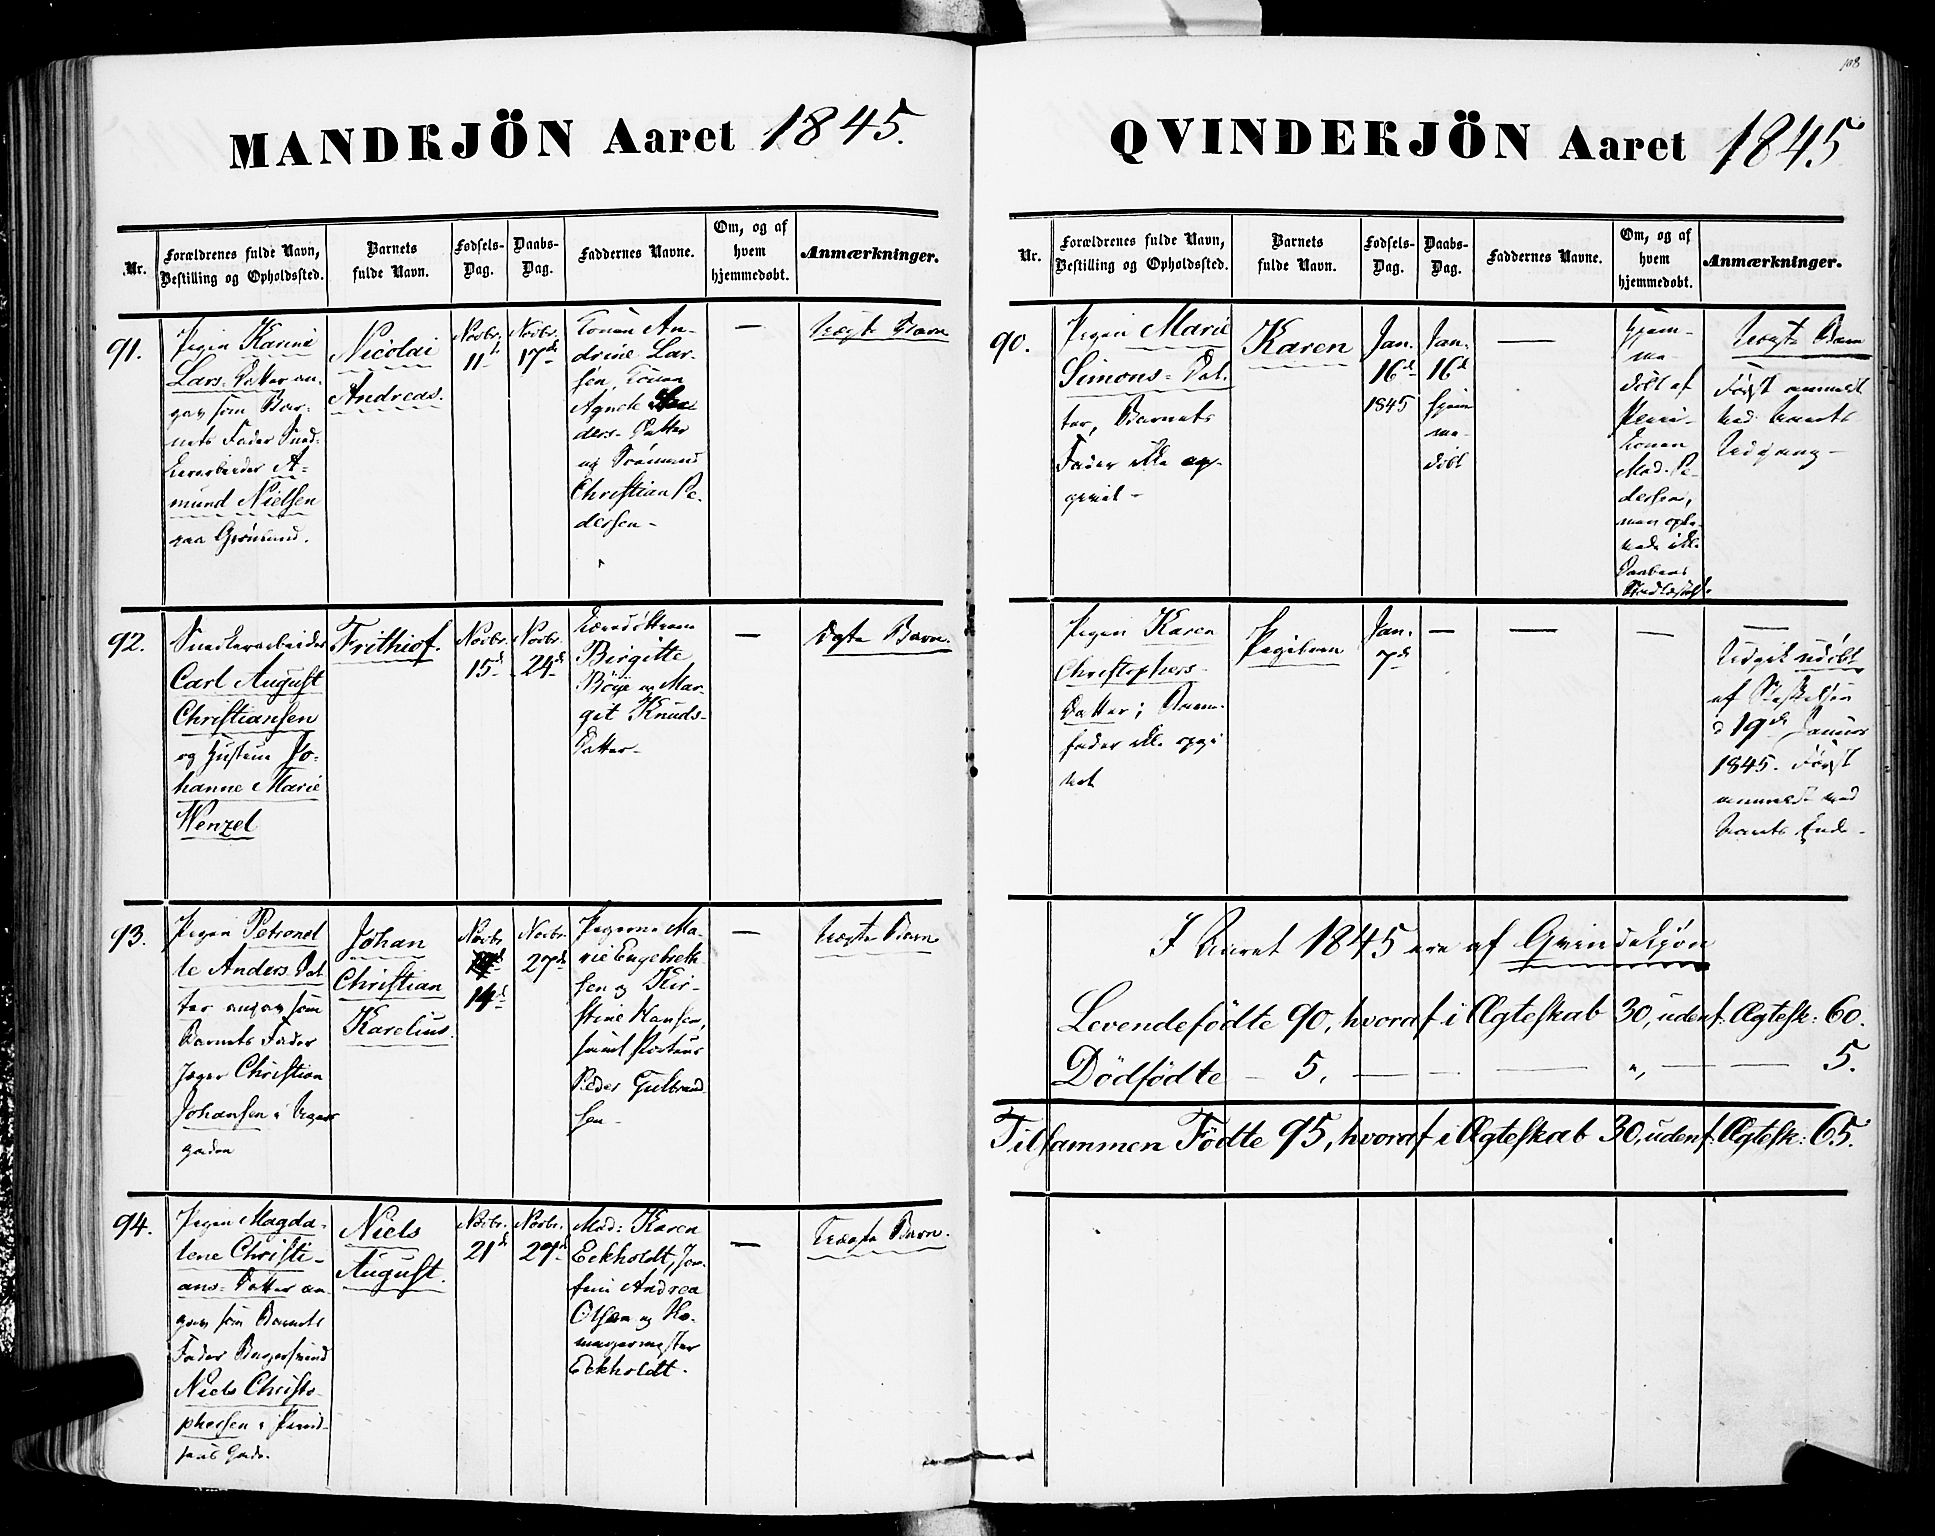 108
MANDKJÖN Aaret 1845.
Nr.
Forældrenes fulde Navn,
Bestilling og Opholdssted.
Barnets
fulde Navn.
Fødsels-
Dag.
Daabs-
Dag.
Faddernes Navne.
Om, og af
hvem
hjemmedøbt.
Anmærkninger.
91.
Pigen Karine
Lars-Datter an-
gav som Bar-
nets Fader Sned-
kerarbeider A-
mund Nielsen
paa Grønland.
Nicolai
Andreas.
Novbr.
11te
Novbr.
17de
Konen An-
drine Lar-
sen, Konen
Agnete
ders-Datter
og
Christian Pe-
dersen-
—
Uægte Barn
92.
Snedkerarbeider
Carl August
Christiansen
og Hustru Jo-
hanne Marie
Wenzel
Frithiof.
Novbr.
15de
Novbr.
24de
Birgitte
Böye og Mar-
git Knuds-
Datter-
—
Ægte Barn.
93.
Pigen Petronel
le Anders Dat
ter angav som
Barnets Fader
Jæger Christian
Johansen i
gaden
Johan
Christian
Karelius.
Novbr.
14de
Novbr.
27de
Pigerne Ma-
rie Engebreth-
sen og Kir-
stine Hansen,
samt
Peder Gulbrand
sen-
—
Uægte Barn
94.
Pigen Magda-
lene Christi-
ans-Datter an-
gav som Barnets
Fader
Niels Christo-
phersen i
Gade.
Niels
August.
Novbr.
21de
Novbr.
27de
Mad: Karen
Eckholdt, Jom-
fru Andrea
Olsen og
Eckholdt.
—
Uægte Barn.
QVINDEKJÖN Aaret 1845
Nr.
Forældrenes fulde Navn,
Bestilling og Opholdssted.
Barnets
fulde Navn.
Fødsels-
Dag.
Daabs-
Dag.
Faddernes Navne.
Om, og af
hvem
hjemmedøbt.
Anmærkninger.
90.
Pigen Marie
Simons-Dat-
ter, Barnets
Fader ikke op-
givet-
Karen
Jan.
16de
1845
Jan.
16de
hjem
me-
døbt
—
hjem-
me-
døbt af
konen
Mad. Pe-
dersen,
Uægte Barn
Først anmeldt
ved Aarets
Udgang-
Pigen Karen
Christophers-
Datter; Barne-
fader ikke opgi
vet
Pigebarn
Jan.
7de
—
—
—
—
Udgik udöbt
af Stiftelsen
d 19de Januar
1845. Först
anmeldt ved
Aarets Ende-
I Aaret 1845 ere af Qvindekjøn
Levendefödte 90, hvoraf i Ægteskab 30, udenf: Ægtesk: 60.
Dödfödte — 5. — — — " — — 5.
Tilsammen Födte 95, hvoraf i Ægteskab 30, udenf: Ægtesk: 65.